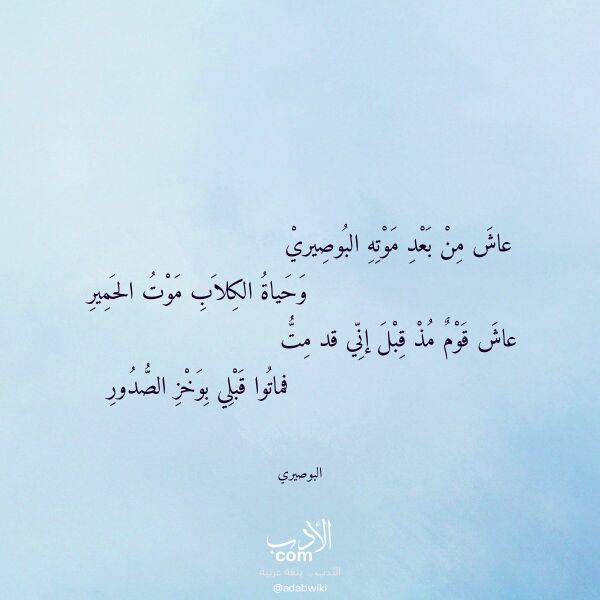 عاشَ مِنْ بَعْدِ مَوْتِهِ البُوصِيريْ
وَحَياةُ الكِلاَبِ مَوْتُ الحَمِيرِ
عاشَ قَوْمٌ مُذْ قِبْلَ إنِّي قد مِتُّ
فماتُوا قَبْلِي بِوَخْزِ الصُّدُورِ
البوصيري
الأدب
com
الأدب .. بلغة عربية
@adabwiki